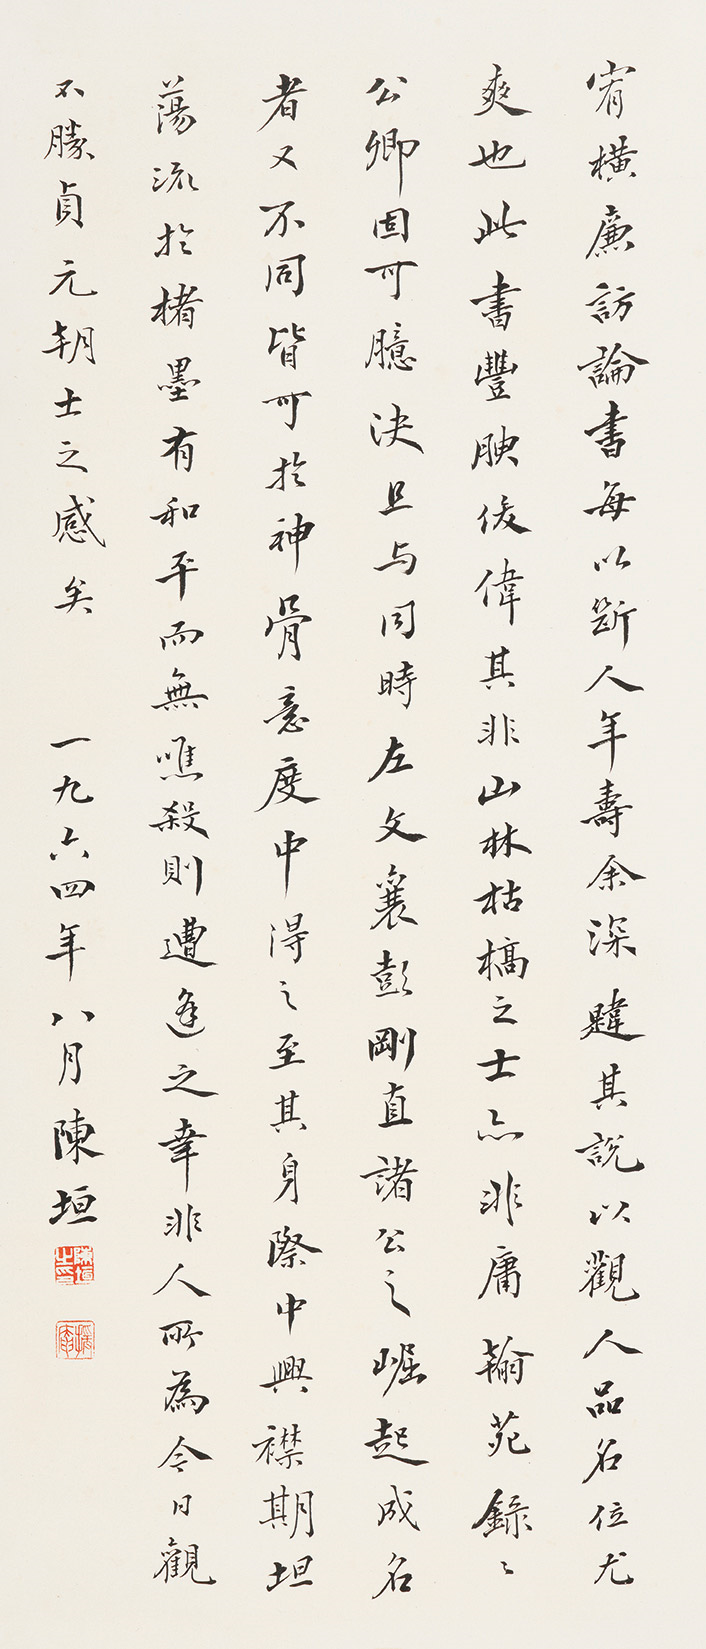 宵橫廉訪論書每以斷人年壽余深韙其說以觀人品名位尤
爽也此書豐腴俊偉其非山林枯槁之士亦非庸翰苑錄〻
公卿固可臆決且与同時左文襄彭剛直諸公之崛起成名
者又不同皆可於神骨意度中得之至其身際中興襟期坦
蕩流於楮墨有和平而無噍殺則遭逢之幸非人所為今日觀
不勝貞元朝士之感矣 一九六四年八月陳垣
陳垣之印